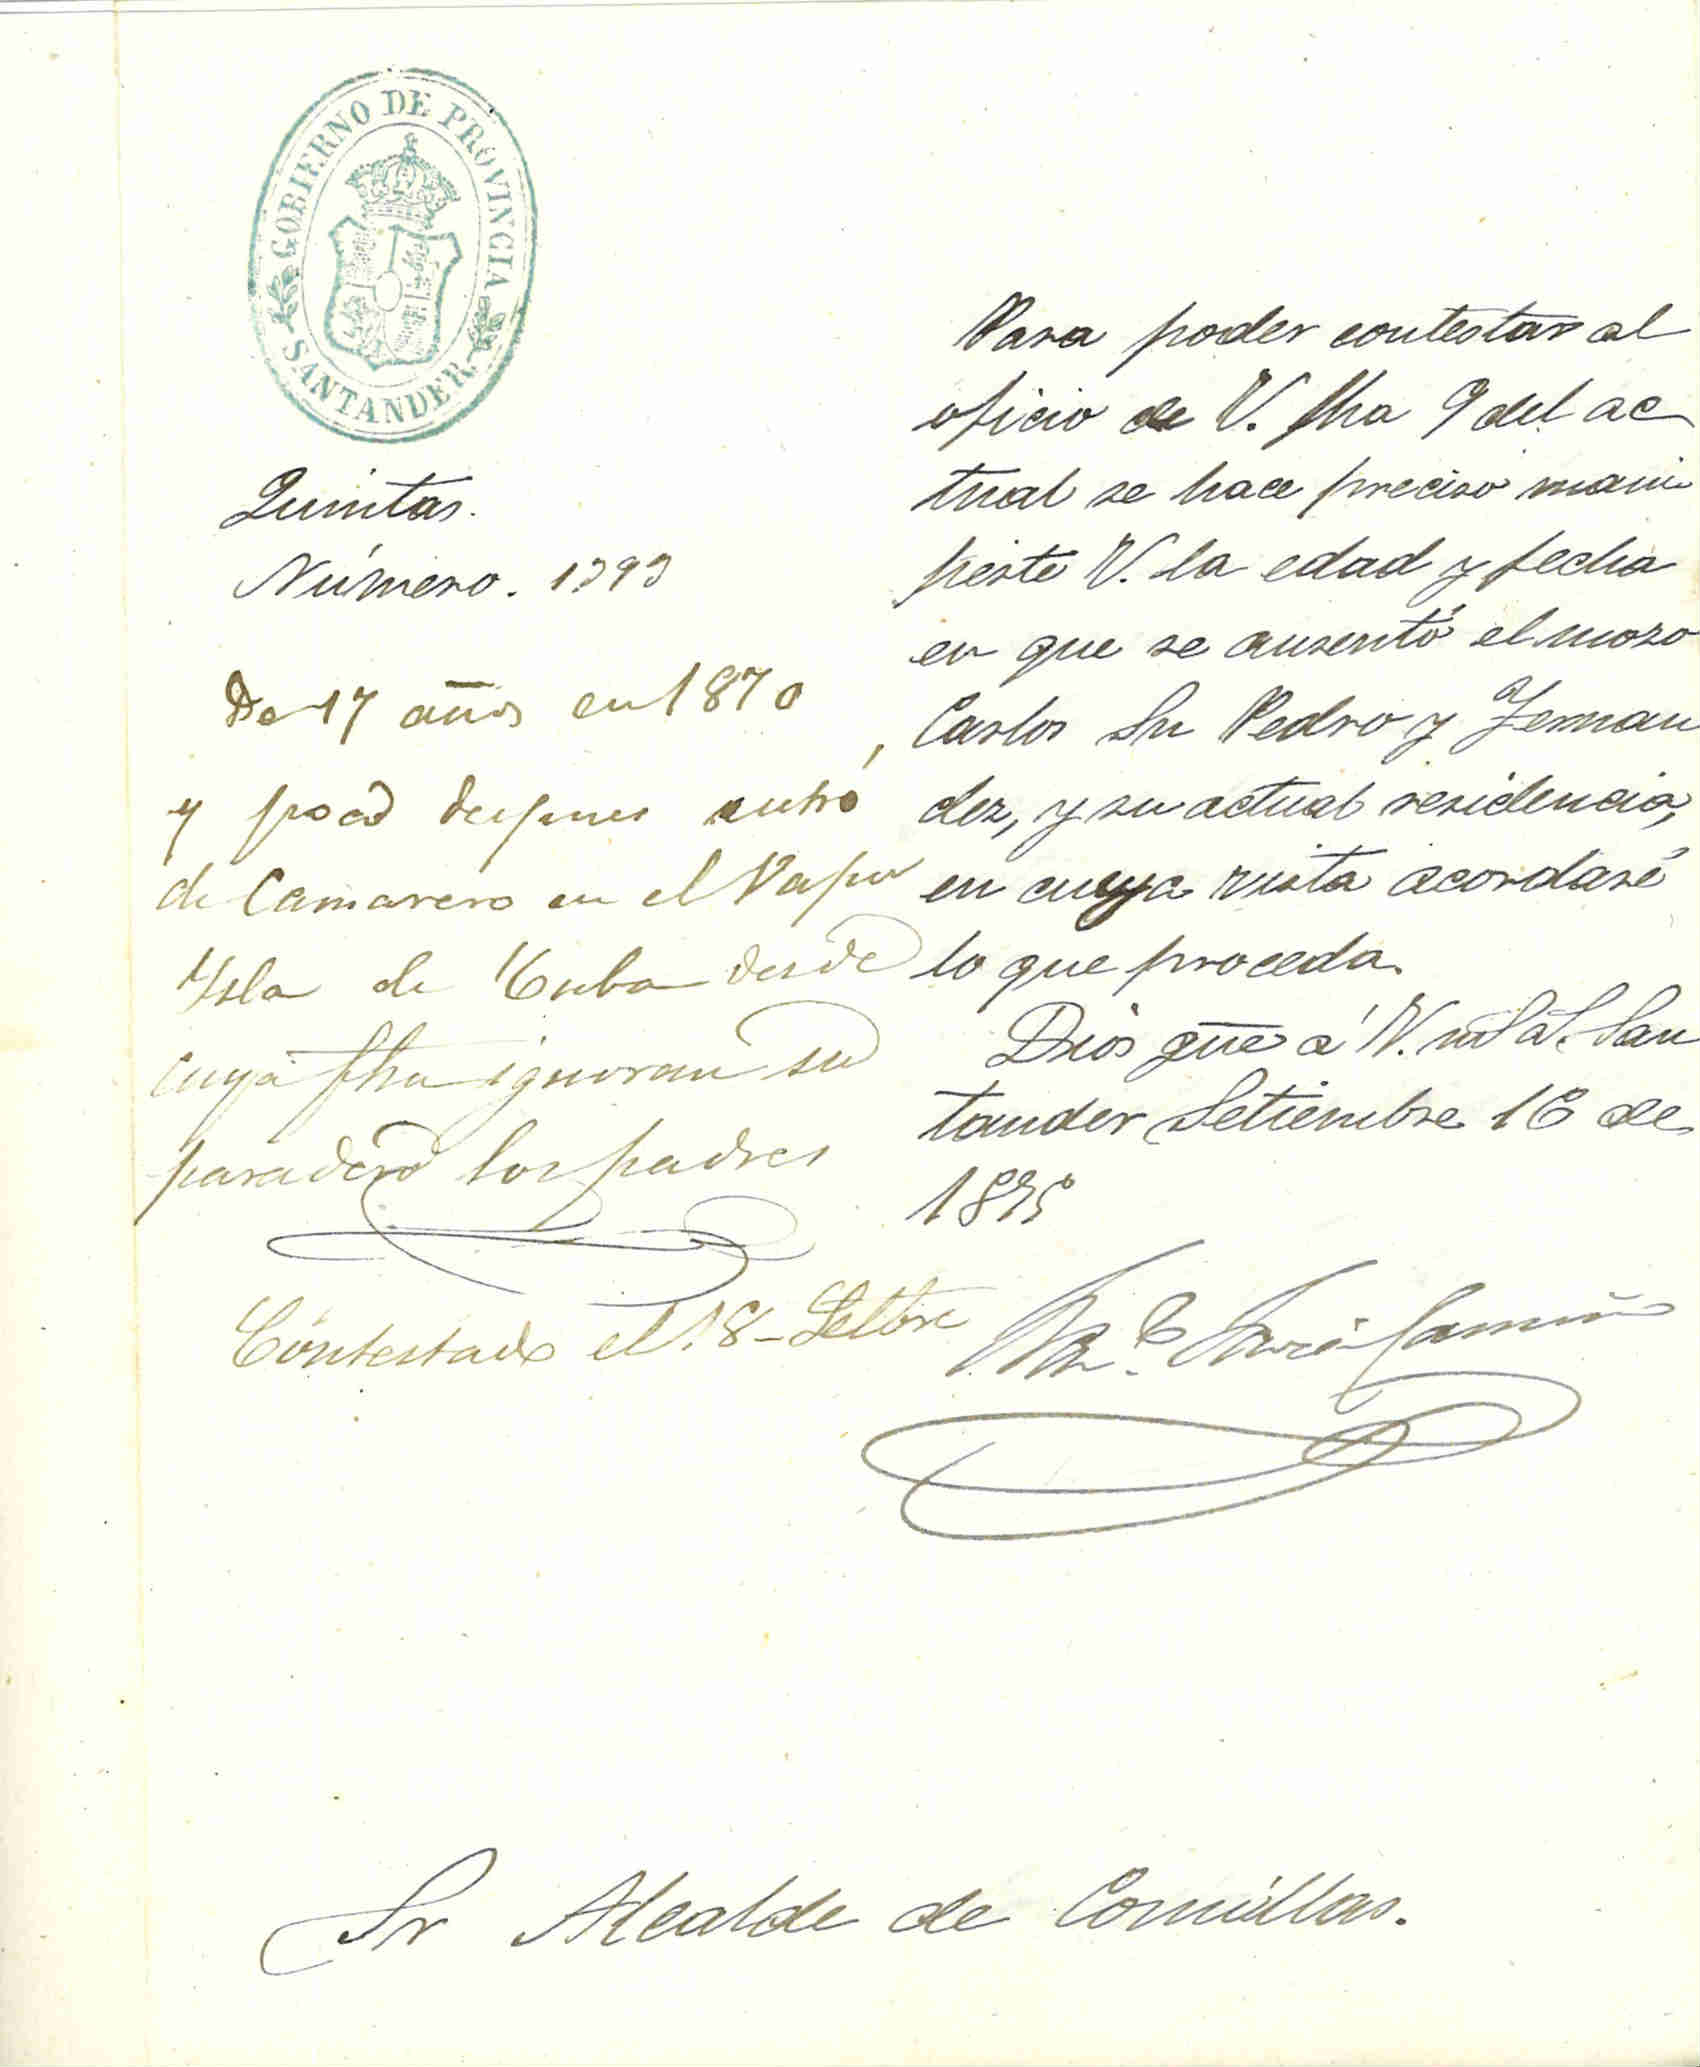 GOBIERNO DE PROVINCIA
SANTANDER.
Quintas.
Número. 1393
De 17 años en 1870
y poco despues entró
de Camarero en el Vapor
Ysla de Cuba desde
cuya fha ignoran su
paradero los padres
Contestado el 18 - Setbre
Para poder contestar al
oficio de V. fha 9 del ac
tual se hace preciso mani
fieste V. la edad y fecha
en que se ausentó el mozo
Carlos Sn Pedro y Fernan
dez, y su actual residencia,
en cuya vista acordaré
lo que proceda.
Dios gue á V. ms as. San
tander Setiembre 16 de
1875
Sr Alcalde de Comillas.